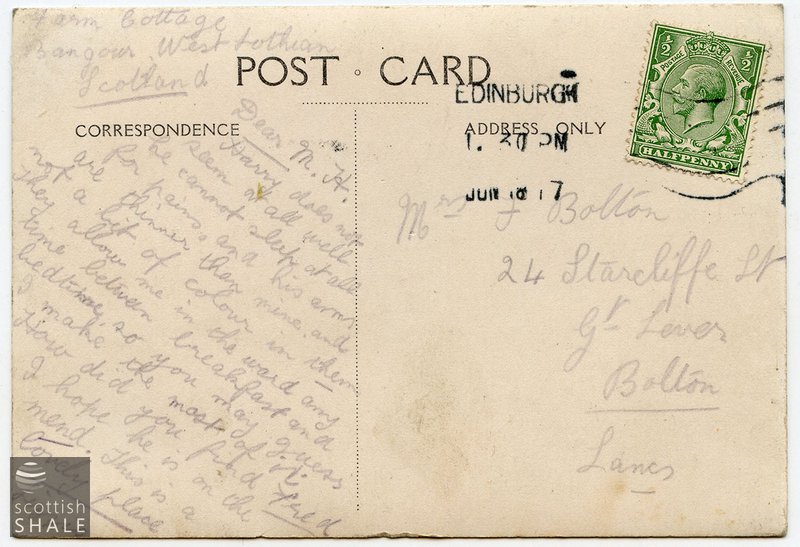 Farm Cottage
Bangour West Lothian
Scotland
POST CARD
CORRESPONDENCE
ADDRESS ONLY
EDINBURGH
1. 30 PM
JUN 18 17
POSTAGE REVENUE
½ ½
HALFPENNY
Dear M. H.
Harry does not
seem at all well
he cannot sleep at all
for pains, and his arms
are thinner than mine and
not a bit of colour in them
They allow me in the ward any
time between breakfast and
bedtime, so you may guess
I make the most of it.
How did you find Fred
I hope he is on the
mend. This is a
place
Mrs J Bolton
24 Starcliffe St
Gt Lever
Bolton
Lancs
scottish
SHALE